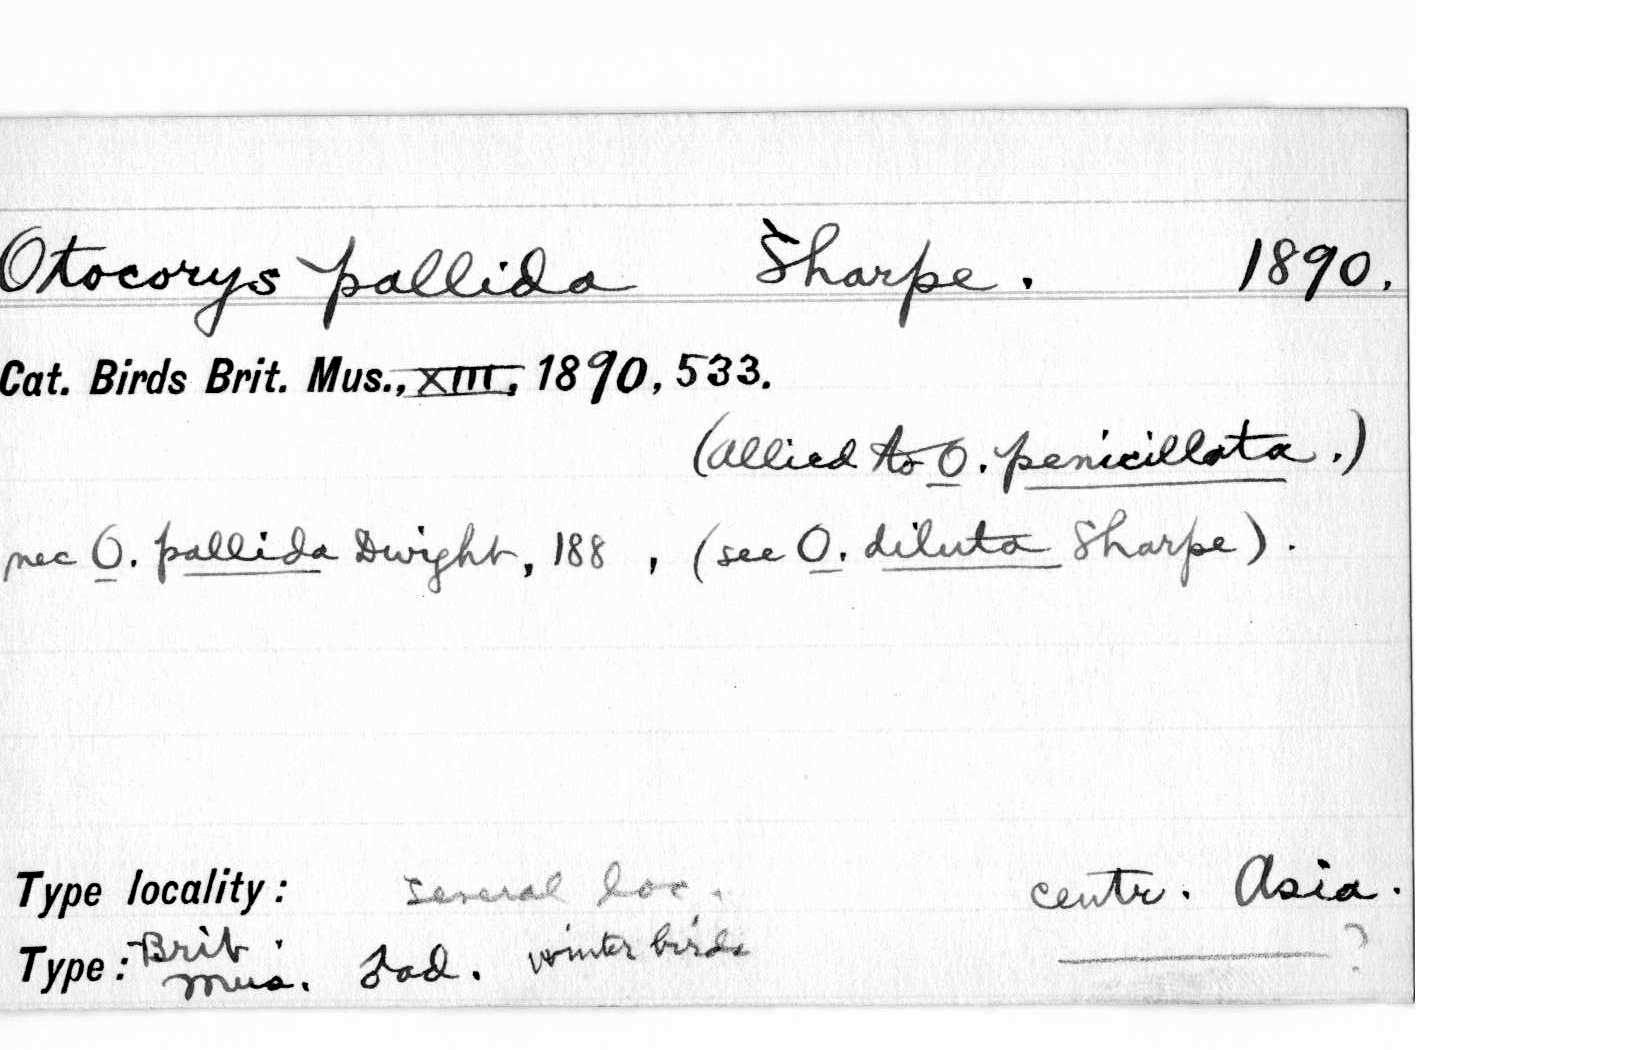 Otocorys pallida Sharpe. 1890.
Cat. Birds Brit. Mus., XIII, 1890, 533.
(allied to O. penicillata.)
nec O. pallida Dwight, 188 , (see O. diluta Sharpe).
Type locality: several loc. centr. Asia.
Type: Brit. Mus. ad. winter birds ?